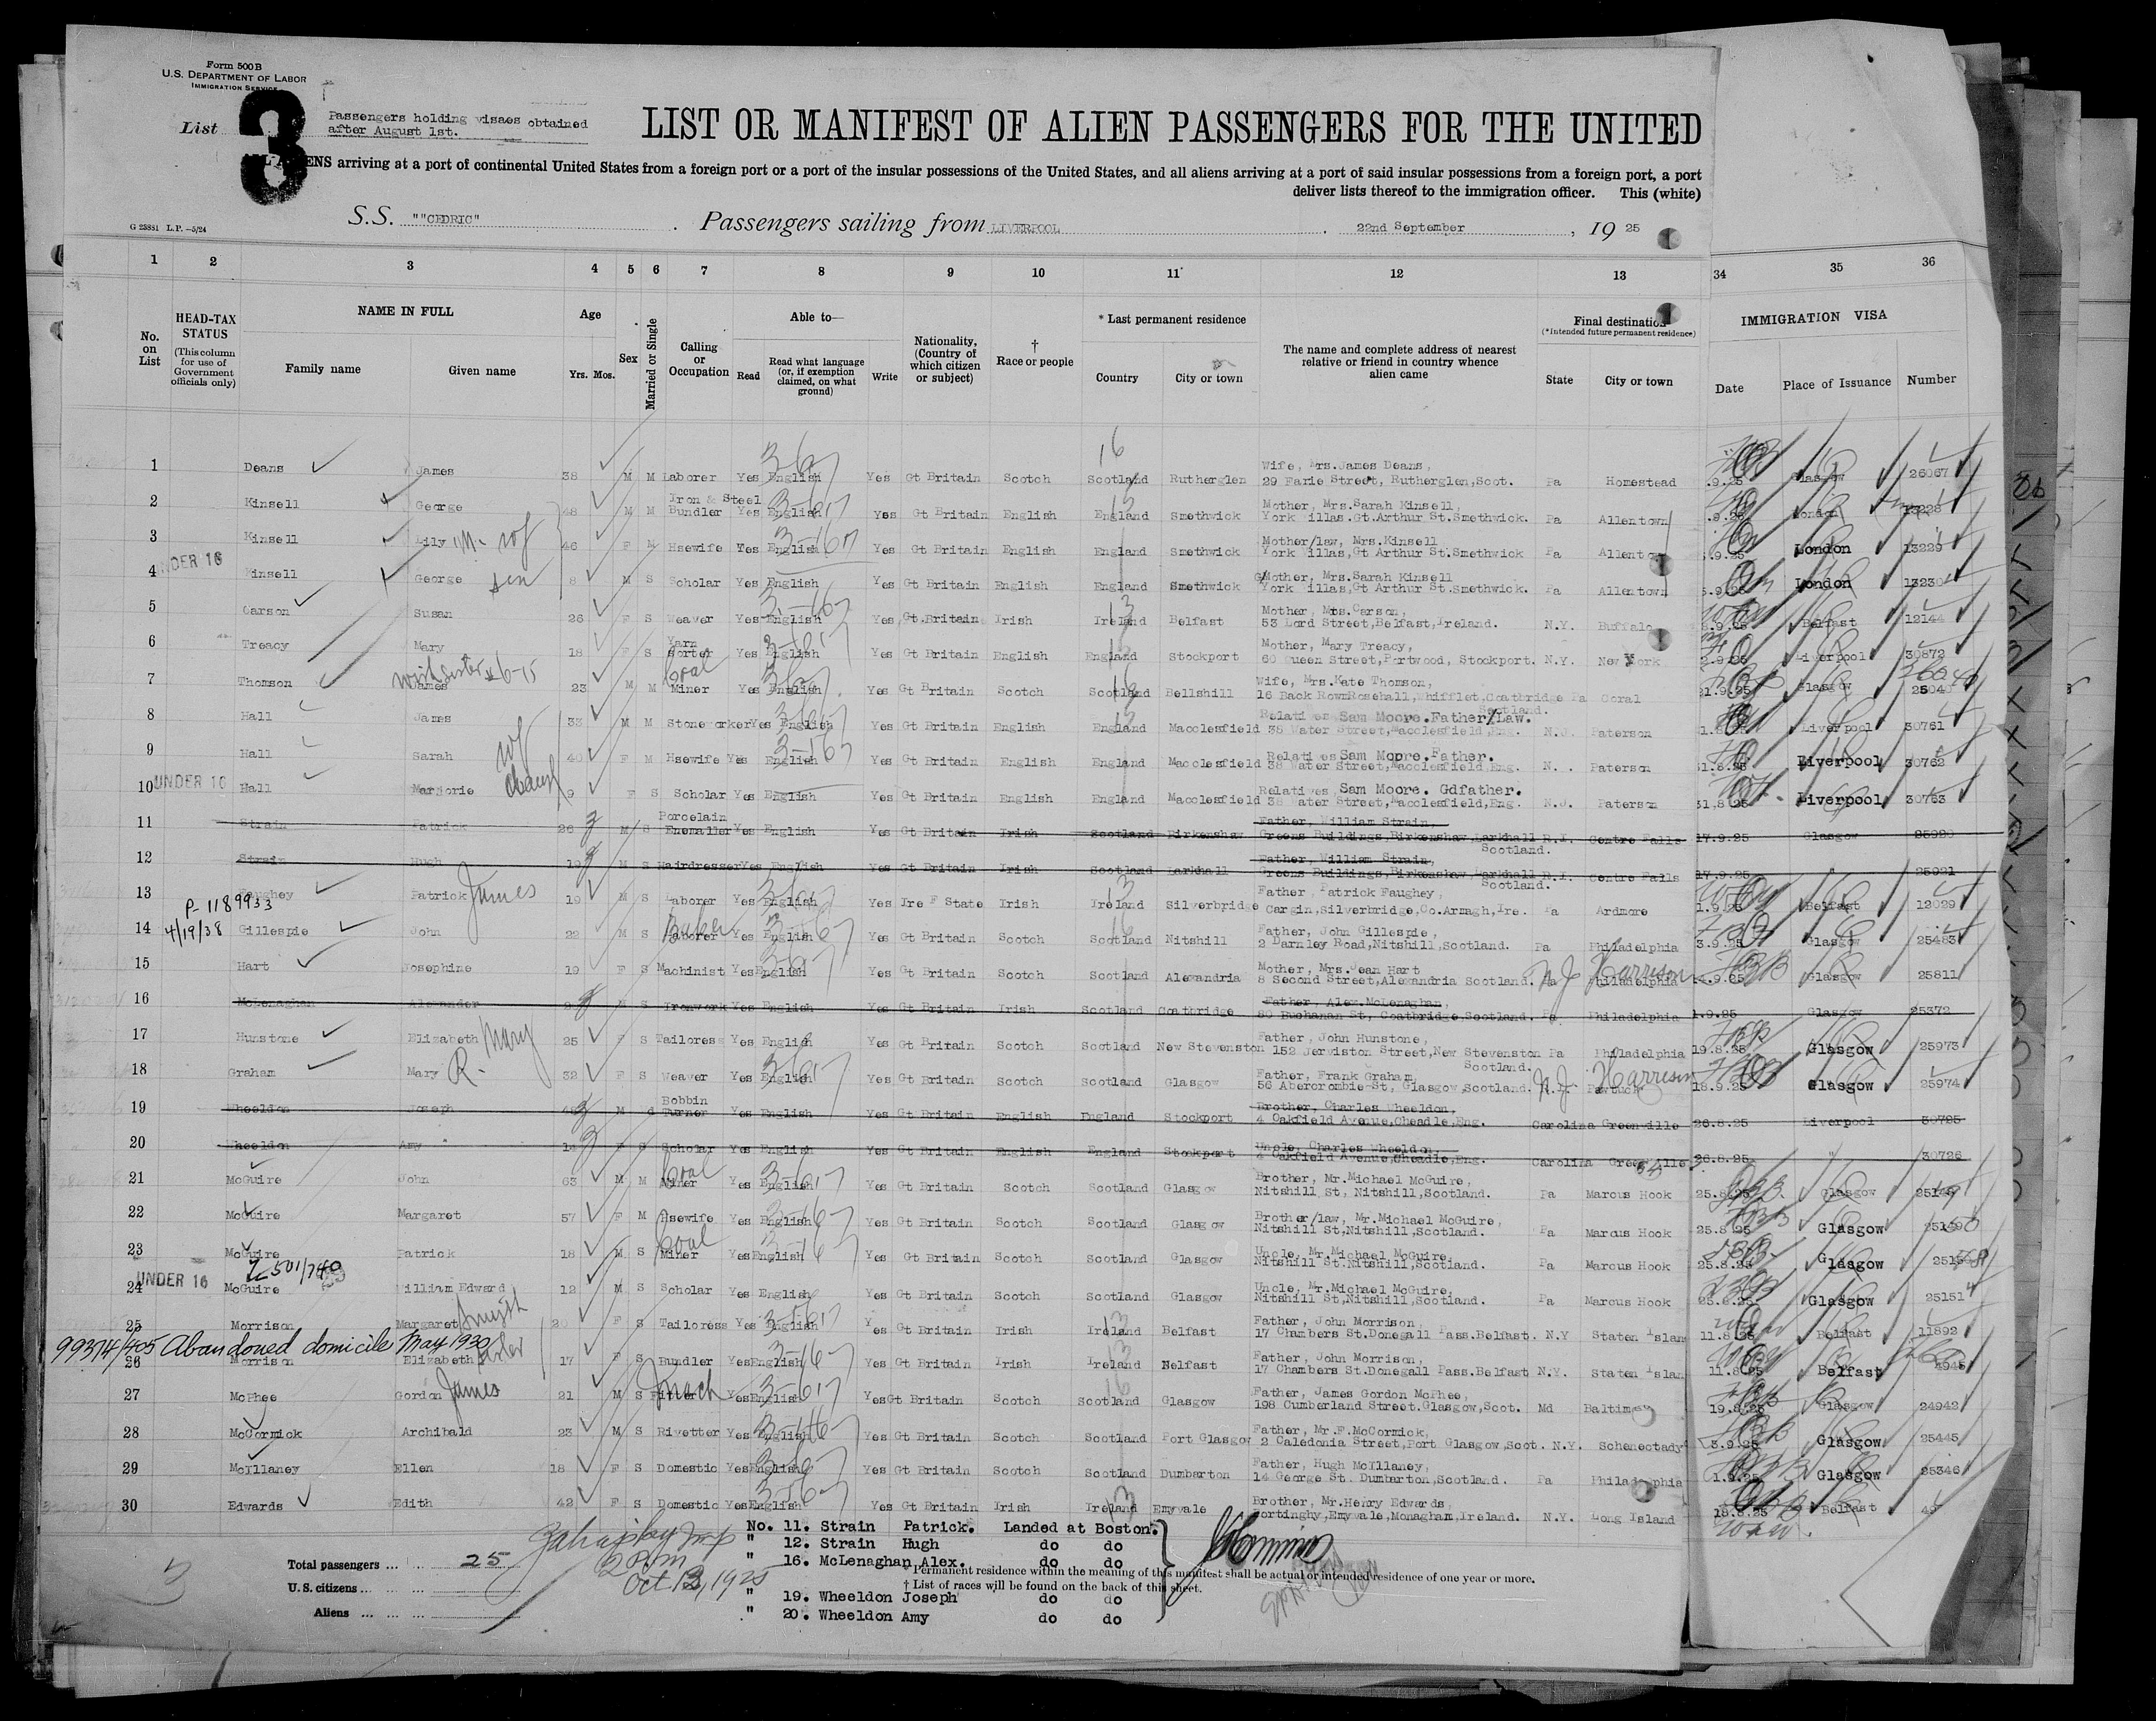 Form 500 B
U.S. DEPARTMENT OF LABOR
IMMIGRATION SERVICE
List 3
Passengers holding visaes obtained
after August 1st.
LIST OR MANIFEST OF ALIEN PASSENGERS FOR THE UNITED
ENS arriving at a port of continental United States from a foreign port or a port of the insular possessions of the United States, and all aliens arriving at a port of said insular possessions from a foreign port, a port
deliver lists thereof to the immigration officer. This (white)
G 23881 L.P.—5/24
S.S. ""CEDRIC" . Passengers sailing from LIVERPOOL . 22nd September , 19 25
1 2 3 4 5 6 7 8 9 10 11 12 13 34 35 36
No. on List
HEAD-TAX STATUS
(This column for use of Government officials only)
NAME IN FULL
Family name Given name
Age
Yrs. Mos.
Sex
Married or Single
Calling or Occupation
Able to—
Read Read what language (or, if exemption claimed, on what ground) Write
Nationality, (Country of which citizen or subject)
† Race or people
* Last permanent residence
Country City or town
The name and complete address of nearest relative or friend in country whence alien came
Final destination
(*Intended future permanent residence)
State City or town
IMMIGRATION VISA
Date Place of Issuance Number
1 Deans James 38 M M Laborer Yes English Yes Gt Britain Scotch Scotland Rutherglen Wife, Mrs.James Deans, 29 Farie Street, Rutherglen,Scot. Pa Homestead .9.25 Glasgow 26067
2 Kinsell George 48 M M Iron & Steel Bundler Yes English Yes Gt Britain English England Smethwick Mother, Mrs.Sarah Kinsell, York illas.Gt.Arthur St.Smethwick. Pa Allentown .9.25 London 13228
3 Kinsell Lily M. wf 46 F M Hsewife Yes English Yes Gt Britain English England Smethwick Mother/law, Mrs.Kinsell York Villas,Gt Arthur St.Smethwick Pa Allentown .9.25 London 13229
4 UNDER 16 Kinsell George son 8 M S Scholar Yes English Yes Gt Britain English England Smethwick G/Mother, Mrs.Sarah Kinsell York illas,Gt Arthur St.Smethwick. Pa Allentown .9.25 London 13230
5 Carson Susan 26 F S Weaver Yes English Yes Gt.Britain Irish Ireland Belfast Mother, Mrs.Carson, 53 Lord Street,Belfast,Ireland. N.Y. Buffalo .9.25 Belfast 12144
6 Treacy Mary 18 F S Yarn Sorter Yes English Yes Gt Britain English England Stockport Mother, Mary Treacy, 60 Queen Street,Portwood, Stockport. N.Y. New York 2.9.25 Liverpool 30872
7 Thomson James 23 M M Coal Miner Yes English Yes Gt Britain Scotch Scotland Bellshill Wife, Mrs.Kate Thomson, 16 Back RowmRosehall,Whifflet.Coatbridge Scotland. Pa Coral 21.9.25 Glasgow 25040
8 Hall James 33 M M Stoneworker Yes English Yes Gt Britain English England Macclesfield Relatives Sam Moore.Father/Law. 38 Water Street,Macclesfield,Eng. N.J. Paterson 31.8.25 Liverpool 30761
9 Hall Sarah wf 40 F M Hsewife Yes English Yes Gt Britain English England Macclesfield Relatives Sam Moore.Father. 38 Water Street,Macclesfield,Eng. N. . Paterson 31.8.25 Liverpool 30762
10 UNDER 16 Hall Marjorie 9 F S Scholar Yes English Yes Gt Britain English England Macclesfield Relatives Sam Moore. Gdfather. 38 Water Street,Macclesfield,Eng. N.J. Paterson 31.8.25 Liverpool 30763
11 Strain Patrick 26 M S Porcelain Enemaller Yes English Yes Gt Britain Irish Scotland Birkenshaw Father, William Strain, Greens Buildings,Birkenshaw,Larkhall Scotland. R.I. Centre Falls 17.9.25 Glasgow 25920
12 Strain Hugh 19 M S Hairdresser Yes English Yes Gt Britain Irish Scotland Larkhall Father, William Strain, Greens Buildings,Birkenshaw,Larkhall Scotland. R.I. Centre Falls 17.9.25 25921
13 Faughey Patrick James 19 M S Laborer Yes English Yes Ire F State Irish Ireland Silverbridge Father, Patrick Faughey, Cargin,Silverbridge,Co.Armagh,Ire. Pa Ardmore 1.9.25 Belfast 12029
P-1189933
14 4/19/38 Gillespie John 22 M S Baker Laborer Yes English Yes Gt Britain Scotch Scotland Nitshill Father, John Gillespie, 2 Darnley Road,Nitshill,Scotland. Pa Philadelphia 3.9.25 Glasgow 25483
15 Hart Josephine 19 F S Machinist Yes English Yes Gt Britain Scotch Scotland Alexandria Mother, Mrs.Jean Hart 8 Second Street,Alexandria Scotland. Pa Philadelphia N.J. Harrison .9.25 Glasgow 25811
16 McLenaghan Alexander M S Ironwork Yes English Yes Gt Britain Irish Scotland Coatbridge Father, Alex.McLenaghan, 80 Buchanan St, Coatbridge,Scotland. Pa Philadelphia 1.9.25 Glasgow 25372
17 Hunstone Elizabeth Mary 25 F S Tailoress Yes English Yes Gt Britain Scotch Scotland New Stevenston Father, John Hunstone, 152 Jerviston Street,New Stevenston Scotland. Pa Philadelphia 19.8.25 Glasgow 25973
18 Graham Mary R. 32 F S Weaver Yes English Yes Gt Britain Scotch Scotland Glasgow Father, Frank Graham, 56 Abercrombie St, Glasgow,Scotland. N.J. Harrison Pawtuck 18.9.25 Glasgow 25974
19 Wheeldon Joseph M Bobbin Turner Yes English Yes Gt Britain English England Stockport Brother, Charles Wheeldon, 4 Oakfield Avenue,Cheadle,Eng. Carolina Greenville 26.8.25 Liverpool 30725
20 Wheeldon Amy F S Scholar Yes English Yes Gt Britain English England Stockport Uncle, Charles Wheeldon, 4 Oakfield Avenue,Cheadle,Eng. Carolina Greenville 26.8.25 " 30726
21 McGuire John 63 M M Coal Miner Yes English Yes Gt Britain Scotch Scotland Glasgow Brother, Mr.Michael McGuire, Nitshill St, Nitshill,Scotland. Pa Marcus Hook 25.8.25 Glasgow 25149
22 McGuire Margaret 57 F M Hsewife Yes English Yes Gt Britain Scotch Scotland Glasgow Brother/law, Mr.Michael McGuire, Nitshill St,Nitshill,Scotland. Pa Marcus Hook 25.8.25 Glasgow
23 McGuire Patrick 18 M S Coal Miner Yes English Yes Gt Britain Scotch Scotland Glasgow Uncle, Mr.Michael McGuire, Nitshill St.Nitshill,Scotland. Pa Marcus Hook 25.8.25 Glasgow
24 UNDER 16 McGuire William Edward 12 M S Scholar Yes English Yes Gt Britain Scotch Scotland Glasgow Uncle, Mr.Michael McGuire, Nitshill St,Nitshill,Scotland. Pa Marcus Hook 25.8.25 Glasgow 25151
25 Morrison Margaret Smyth 20 F S Tailoress Yes English Y Gt Britain Irish Ireland Belfast Father, John Morrison, 17 Chambers St.Donegall Pass.Belfast. N.Y Staten Islan 11.8.25 Belfast 11892
99314/405 Abandoned domicile May 1930
26 Morrison Elizabeth sister 17 F S Bundler Yes English Yes Gt Britain Irish Ireland Nelfast Father, John Morrison, 17 Chambers St.Donegall Pass.Belfast N.Y. Staten Islan 11.8.25 Belfast
27 McPhee Gordon James 21 M S Fitter Yes English Yes Gt Britain Scotch Scotland Glasgow Father, James Gordon McPhee, 198 Cumberland Street.Glasgow,Scot. Md Baltimore 19.8.25 Glasgow 24942
28 McCormick Archibald 23 M S Rivetter Yes English Yes Gt Britain Scotch Scotland Port Glasgow Father, Mr.F.McCormick, 2 Caledonia Street,Port Glasgow,Scot. N.Y. Schenectady 3.9.25 Glasgow 25445
29 McIllaney Ellen 18 F S Domestic Yes English Yes Gt Britain Scotch Scotland Dumbarton Father, Hugh McIllaney, 14 George St. Dumbarton,Scotland. Pa Philadelphia 1.9.25 Glasgow 25346
30 Edwards Edith 42 F S Domestic Yes English Yes Gt Britain Irish Ireland Emyvale Brother, Mr.Henry Edwards, Portinghy,Emyvale,Monagham,Ireland. N.Y. Long Island 18.8.25 Belfast
No. 11. Strain Patrick. Landed at Boston.
" 12. Strain Hugh do do
" 16. McLenaghan Alex. do do
* Permanent residence within the meaning of this manifest shall be actual or intended residence of one year or more.
† List of races will be found on the back of this sheet.
" 19. Wheeldon Joseph do do
" 20. Wheeldon Amy do do
Total passengers ... 25
U.S. citizens ...
Aliens ...
2 P.m
Oct 13, 1925